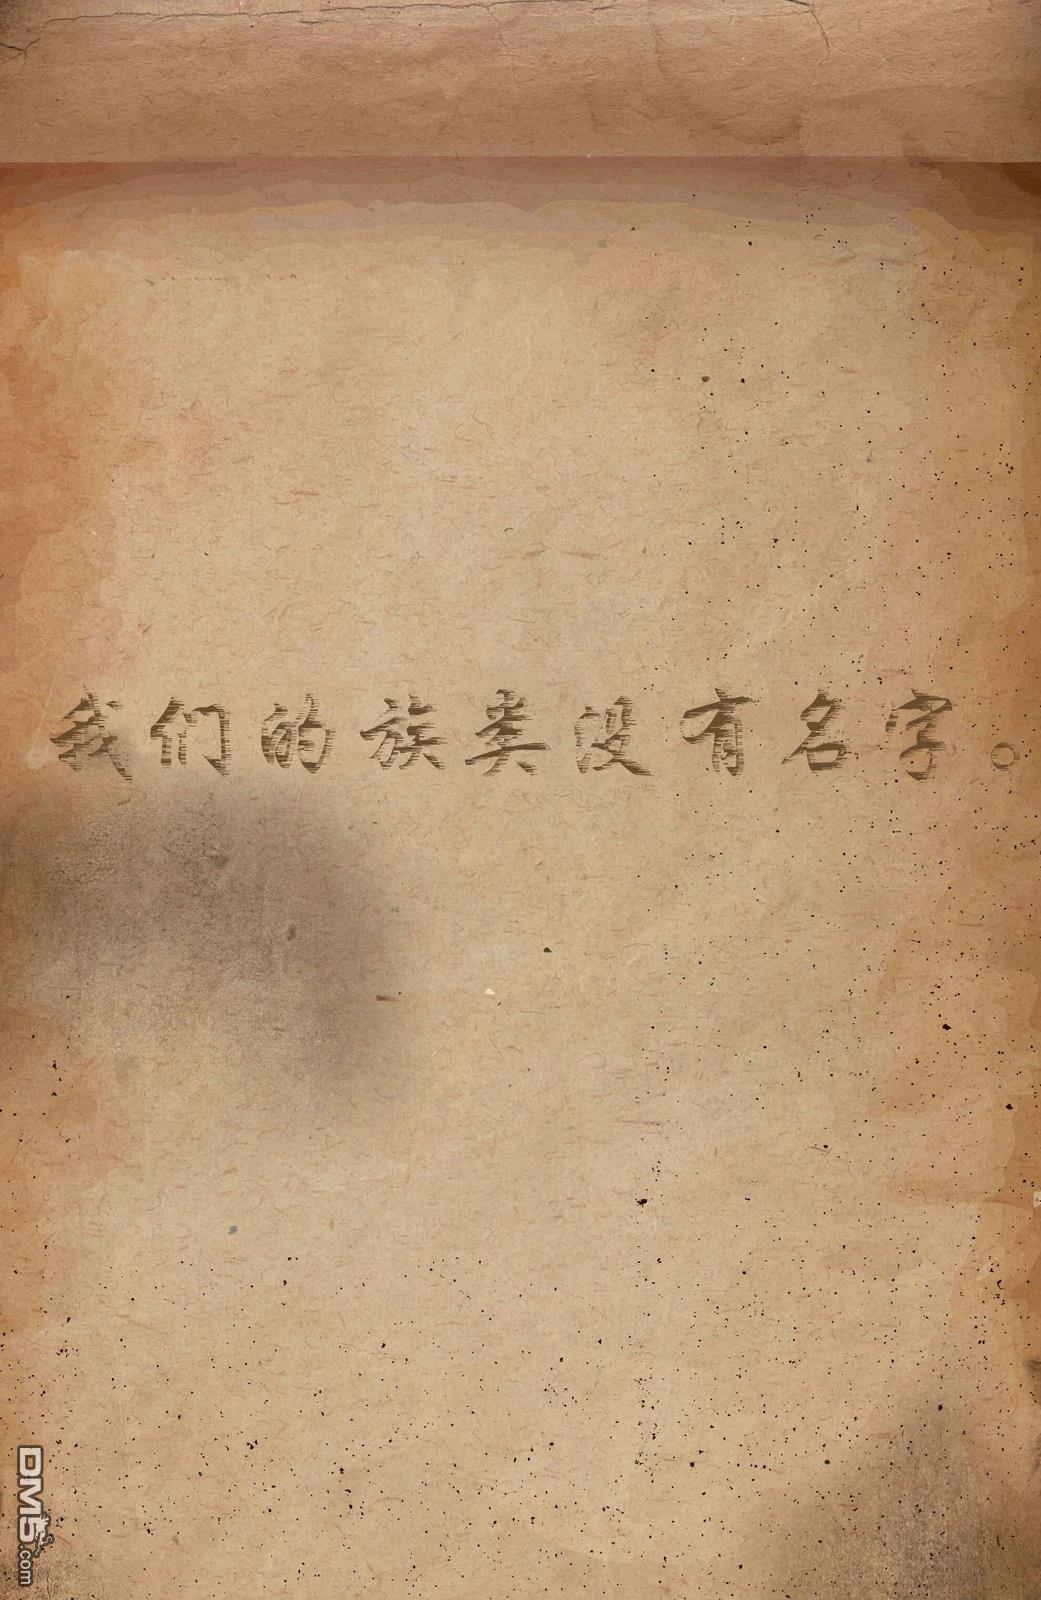 我们的族类没有名字。
DM5.com